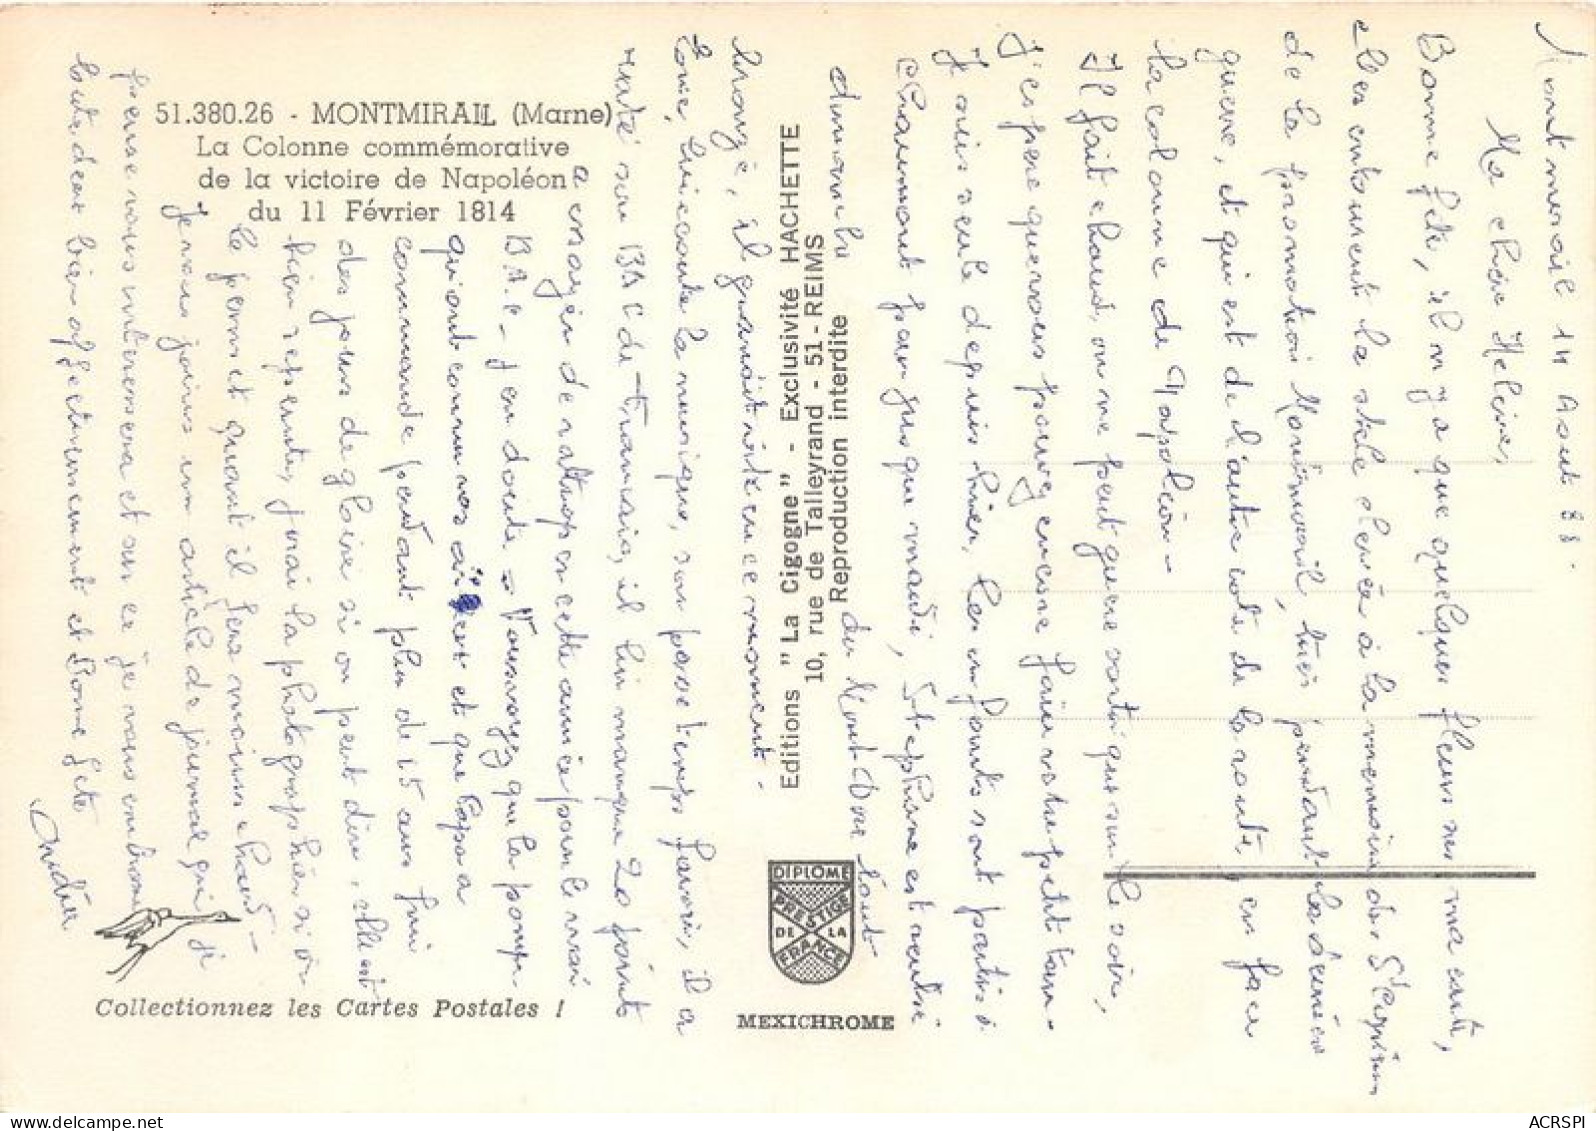 51.380.26 - MONTMIRAIL (Marne)
La Colonne commémorative
de la victoire de Napoléon
du 11 Février 1814
Editions "La Cigogne" - Exclusivité HACHETTE
10, rue de Talleyrand - 51 - REIMS
Reproduction interdite
DIPLOME
PRESTIGE
DE LA
FRANCE
MEXICHROME
Collectionnez les Cartes Postales !
Montmirail 14 Aout 88.
Ma chère Hélène,
Bonne fête, il n'y a que quelques fleurs sur ma carte,
elles entourent la stèle élevée à la memoire des
de la Montmirail, tués pendant la dernière
guerre, et qui est de l'autre coté de la route, en face
la colonne de Napoléon -
Il fait chaud, on ne peut guere sortir que sur le soir,
J'espere que vous pouvez encore faire votre petit tour -
Je suis seule depuis hier, les enfants sont partis à
Chaumont jusque mardi, Stephane est rentré
dimanche du Mont Dore tout
bronzé, il grandit vite en ce moment -
écoute la musique, son passe temps favori, il a
raté son BAC de Français, il lui manque 20 points
a essayer de rattraper cette année pour le vrai
BAC - J'en doute - Vous voyez que la pompe
qui ont connu nos et que Papa a
commandé pendant plus de 15 ans fini
des jours de gloire si on peut dire, elle est
bien repeinte, j'irai la photographier si on
le permet quant il fera moins chaud -
Je vous joins un article de journal qui je
pense vous interessera et sur ce je vous embrasse
toutes deux bien affectueusement et Bonne fête